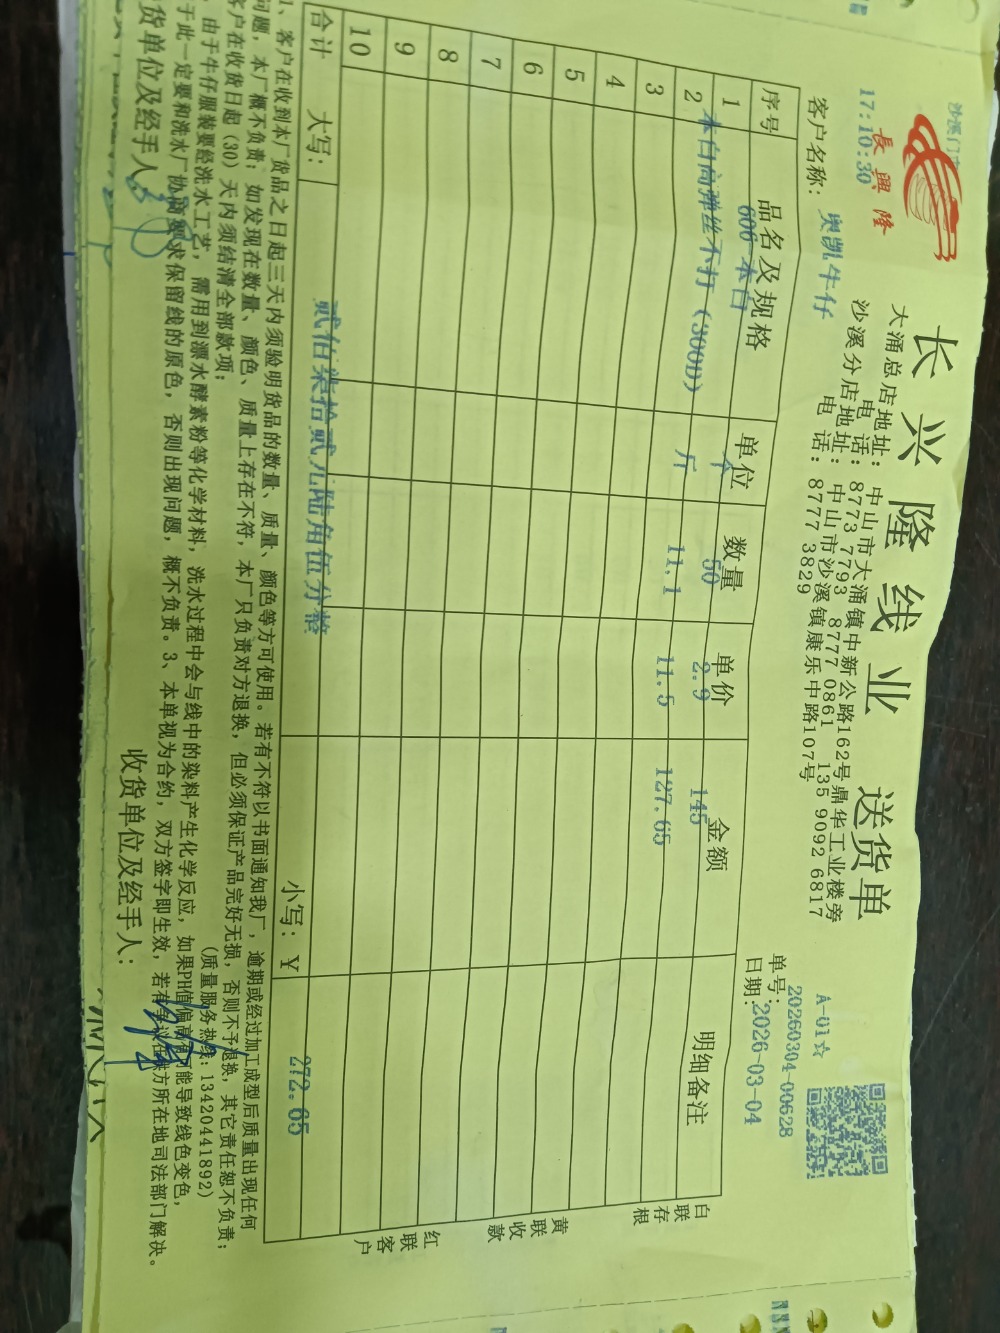 沙溪门市
長興隆
17:10:30
长兴隆线业 送货单
大涌总店地址：中山市大涌镇中新公路162号鼎华工业楼旁
电话：8773 7793 8777 0861 135 9092 6817
沙溪分店地址：中山市沙溪镇康乐中路107号
电话：8777 3829
A-01☆
单号：20260304-00628
客户名称：奥凯牛仔
日期：2026-03-04
序号 品名及规格 单位 数量 单价 金额 明细备注
1 606 本白 个 50 2.9 145
2 本白高弹丝不打（300D） 斤 11.1 11.5 127.65
3
4
5
6
7
8
9
10
合计 大写：贰佰柒拾贰元陆角伍分整 小写：¥ 272.65
白联存根
黄联收款
红联客户
1、客户在收到本厂货品之日起三天内须验明货品的数量、质量、颜色等方可使用。若有不符以书面通知我厂，逾期或经过加工成型后质量出现任何
问题，本厂概不负责；如发现在数量、颜色、质量上存在不符，本厂只负责对方退换，但必须保证产品完好无损，否则不予退换，其它责任恕不负责；
客户在收货日起（30）天内须结清全部款项；
（质量服务热线：13420441892）
由于牛仔服装要经洗水工艺，需用到漂水酵素粉等化学材料，洗水过程中会与线中的染料产生化学反应，如果PH值偏高有可能导致线色变色，
于此一定要和洗水厂协商要求保留线的原色，否则出现问题，概不负责。3、本单视为合约，双方签字即生效，若有争议在供方所在地司法部门解决。
货单位及经手人： 收货单位及经手人：